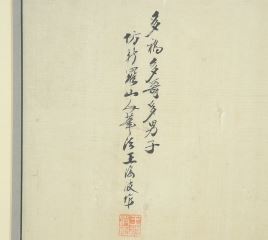 多福多壽多男子
仿新羅山人筆法王海波作